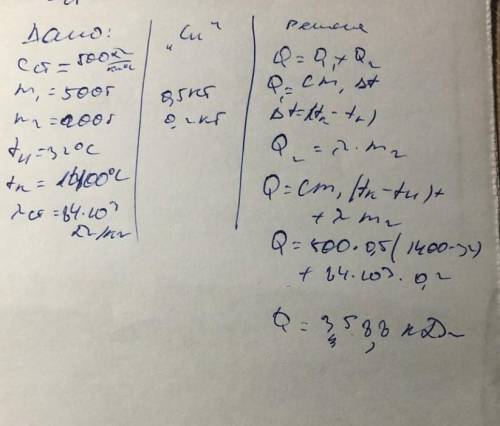 Дано:
Cст = 500 Дж/кг°С
m₁ = 500г
m₂ = 200г
tн = 32°С
tк = 1400°С
λст = 84·10³
Дж/кг
"Си"
0,5кг
0,2кг
Решение
Q = Q₁ + Q₂
Q₁ = Cm₁ Δt
Δt = (tк - tн)
Q₂ = λ·m₂
Q = Cm₁ (tк - tн) +
+ λ m₂
Q = 500·0,5(1400-32)
+ 84·10³·0,2
Q = 358,8 кДж